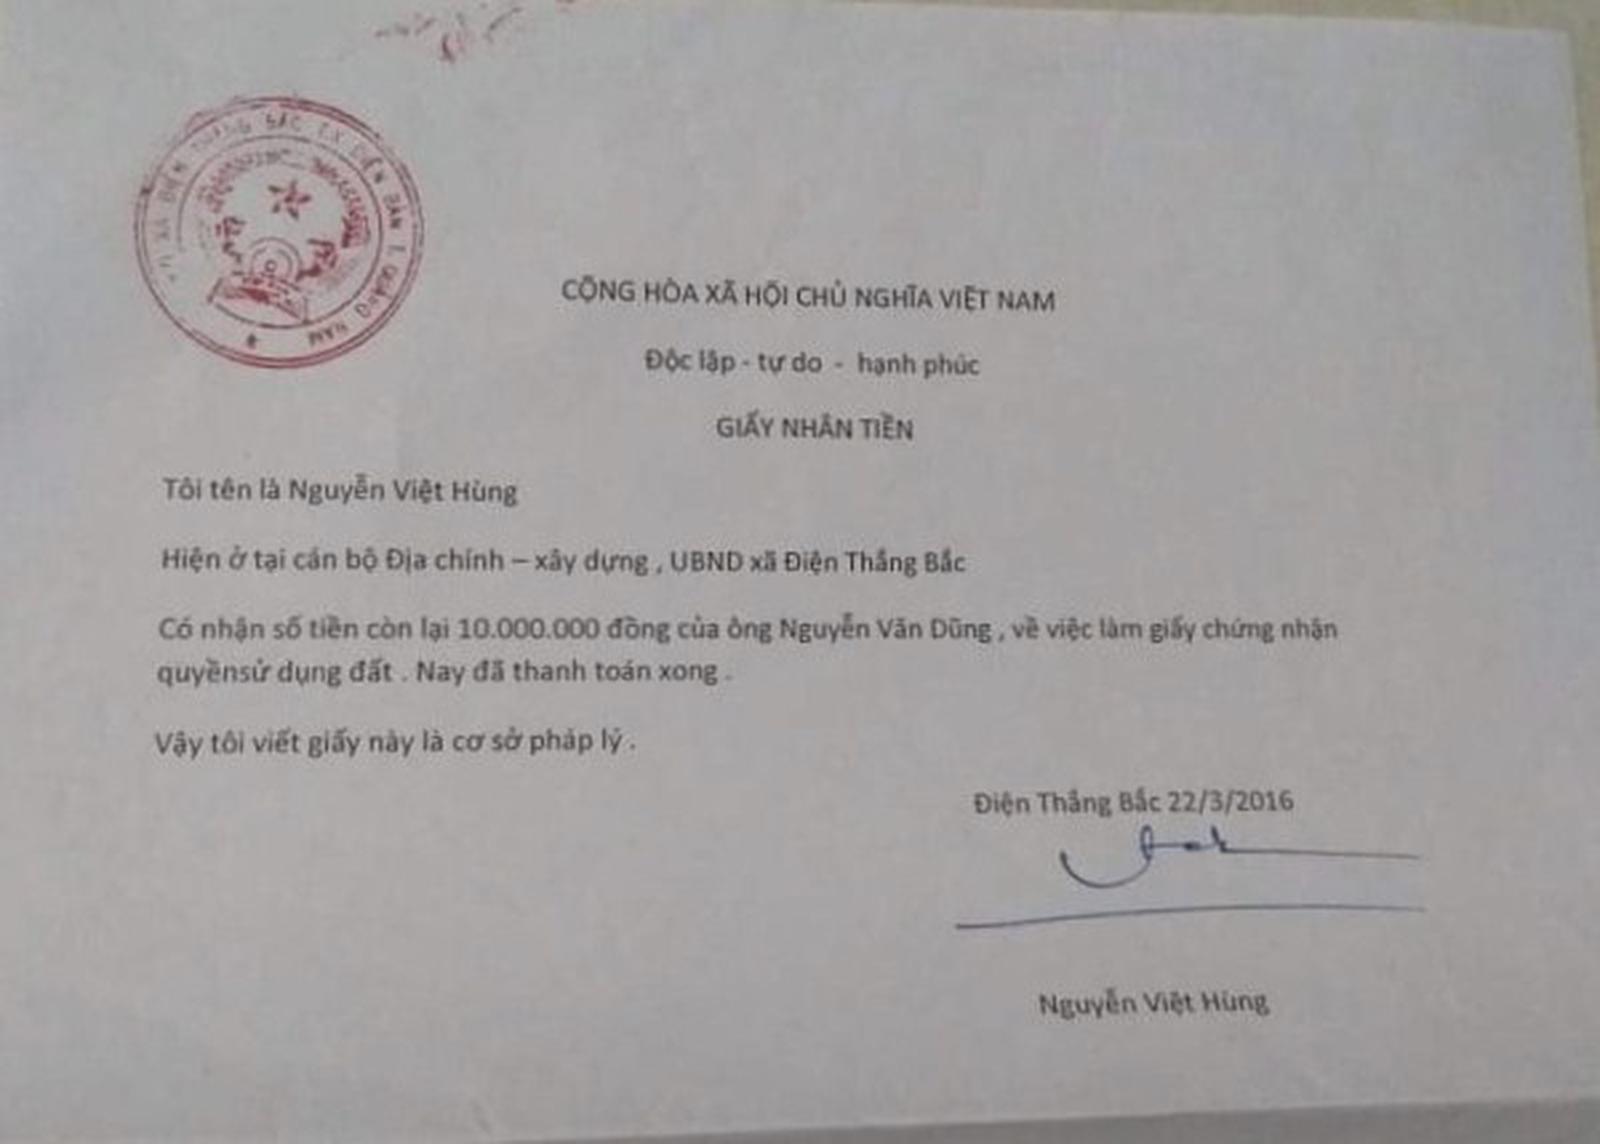 XÃ ĐIỆN THẮNG BẮC T.X ĐIỆN BÀN T. QUẢNG NAM
CỘNG HÒA XÃ HỘI CHỦ NGHĨA VIỆT NAM
Độc lập - tự do - hạnh phúc
GIẤY NHÂN TIỀN
Tôi tên là Nguyễn Việt Hùng
Hiện ở tại cán bộ Địa chính – xây dựng , UBND xã Điện Thắng Bắc
Có nhận số tiền còn lại 10.000.000 đồng của ông Nguyễn Văn Dũng , về việc làm giấy chứng nhận
quyềnsử dụng đất . Nay đã thanh toán xong .
Vậy tôi viết giấy này là cơ sở pháp lý .
Điện Thắng Bắc 22/3/2016
Nguyễn Việt Hùng